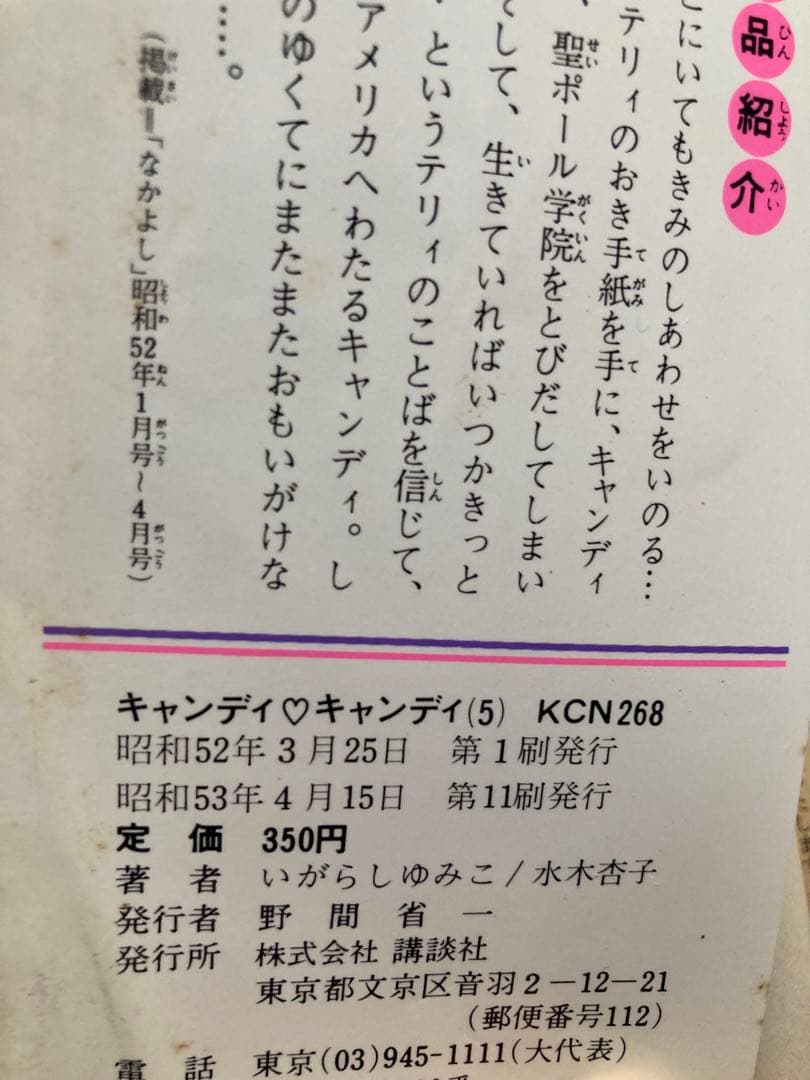 品紹介
こにいてもきみのしあわせをいのる…
テリィのおき手紙を手に、キャンディ
、聖ポール学院をとびだしてしまい
そして、生きていればいつかきっと
というテリィのことばを信じて、
アメリカへわたるキャンディ。し
のゆくてにまたまたおもいがけな
……。
(掲載=「なかよし」昭和52年1月号~4月号)
キャンディ♡キャンディ(5) KCN268
昭和52年3月25日 第1刷発行
昭和53年4月15日 第11刷発行
定価 350円
著者 いがらしゆみこ/水木杏子
発行者 野間省一
発行所 株式会社 講談社
東京都文京区音羽2-12-21
(郵便番号112)
電話 東京(03)945-1111(大代表)